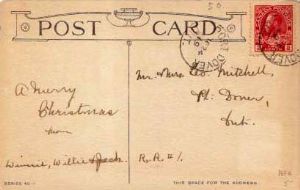 50
POST CARD
PORT DOVER
A Merry
Christmas
from
Winnie, Willie & Jack.
Mr. & Mrs. Geo Mitchell,
Pt. Dover,
Ont.
R.R. #1.
SERIES 40
THIS SPACE FOR THE ADDRESS.